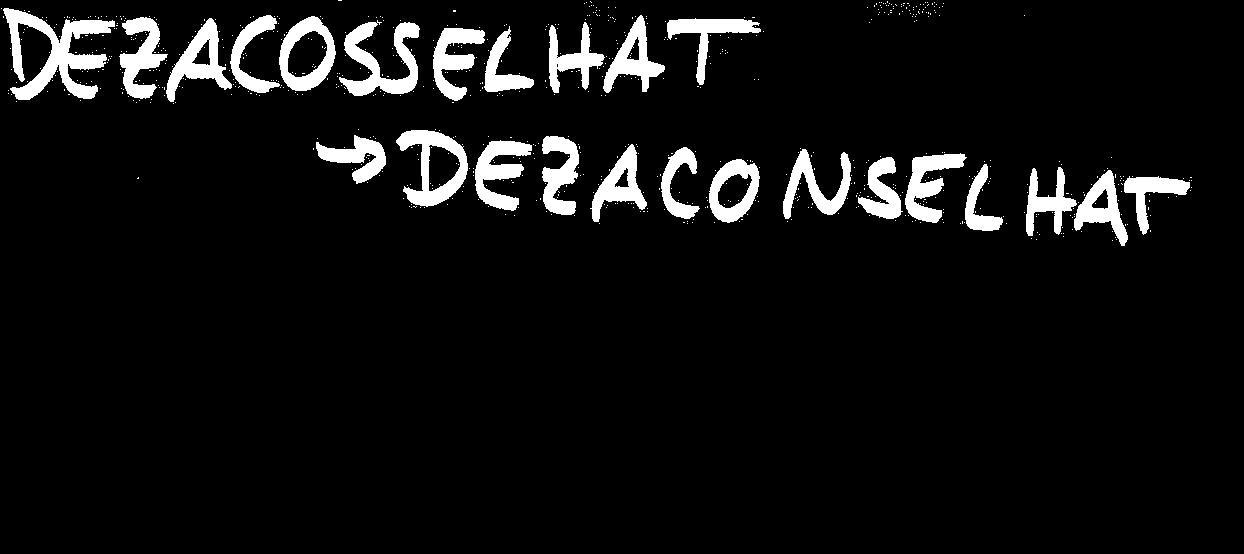 DEZACOSSELHAT
→DEZACONSELHAT